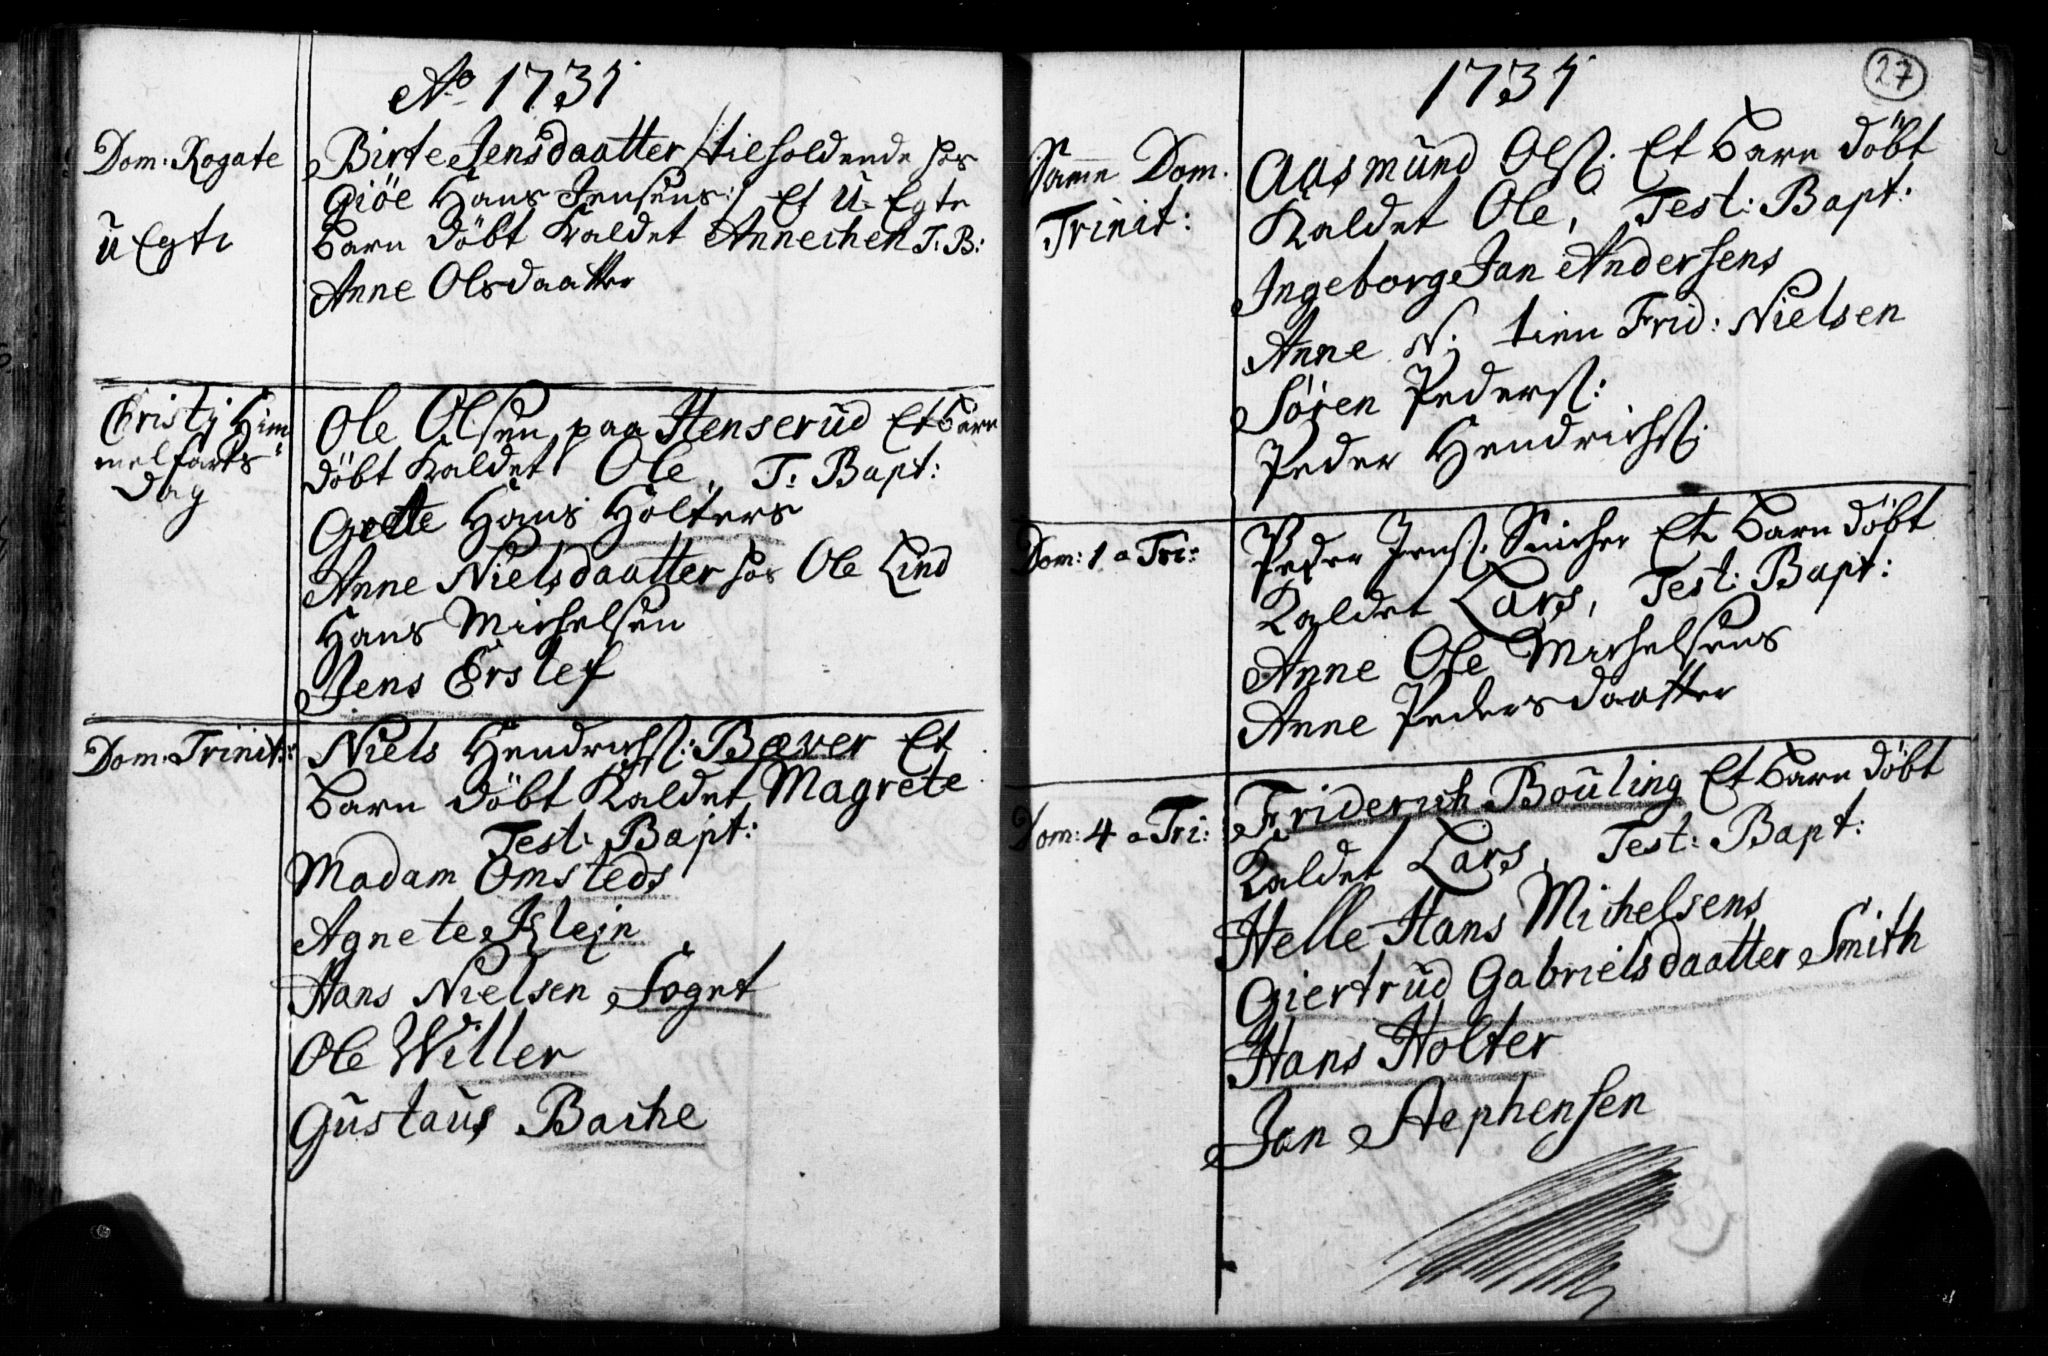 Ao 1731
Dom: Rogate
U Egte
Birte Jensdaatter /: tilholdende hos
Giöe Hans Jensens :/ Et U-Egte
barn döbt kaldet Annichen T: B:
Anne Olsdaatter
Christj Him
melfarts
Dag
Ole Olsen paa Henserud Et barn
döbt kaldet Ole, T: Bapt:
Grete Hans Holters
Anne Nielsdaatter hos Ole Lind
Hans Michelsen
Jens Erslef
Dom: Trinit:
Niels Hendrichs: Bæver Et
barn döbt kaldet Magrete
Test: Bapt:
Madam Omsteds
Agnete Klejn
Hans Nielsen Fognt
Ole Willer
Gustaus Bache
1731
27
Samme Dom.
Trinit:
Aasmund Ols: Et barn döbt
kaldet Ole, Test: Bapt:
Ingeborg Jan Andersens
Anne N: tien Frid: Nielsen
Sören Peders:
Peder Hendrichs:
Dom: 1 a Tri:
Peder Jens: Snicher Et barn döbt
kaldet Lars, Test: Bapt:
Anne Ole Michelsens
Anne Pedersdaatter
Dom: 4 a Tri:
Friderich Bouling Et barn döbt
kaldet Lars, Test: Bapt:
Helle Hans Michelsens
Giertrud Gabrielsdaatter Smith
Hans Holter
Jan Stephensen